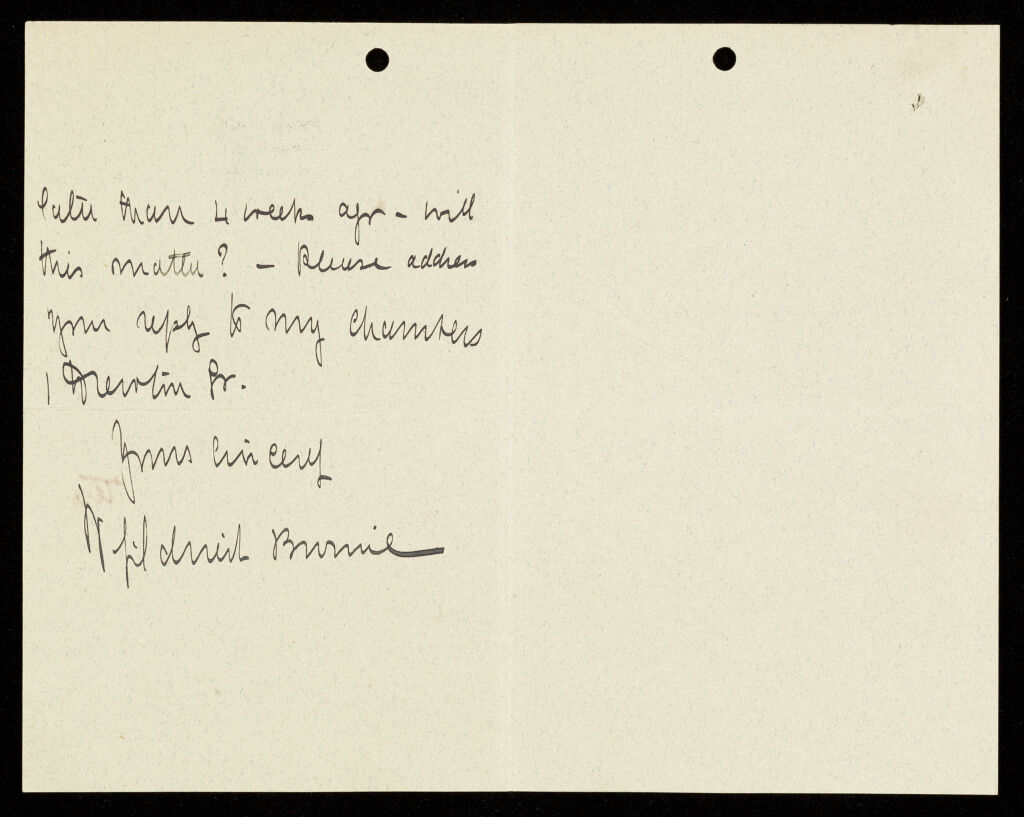 later than 4 weeks ago – will
this matter? – Please address
your reply to my chambers
1
Yours sincerely